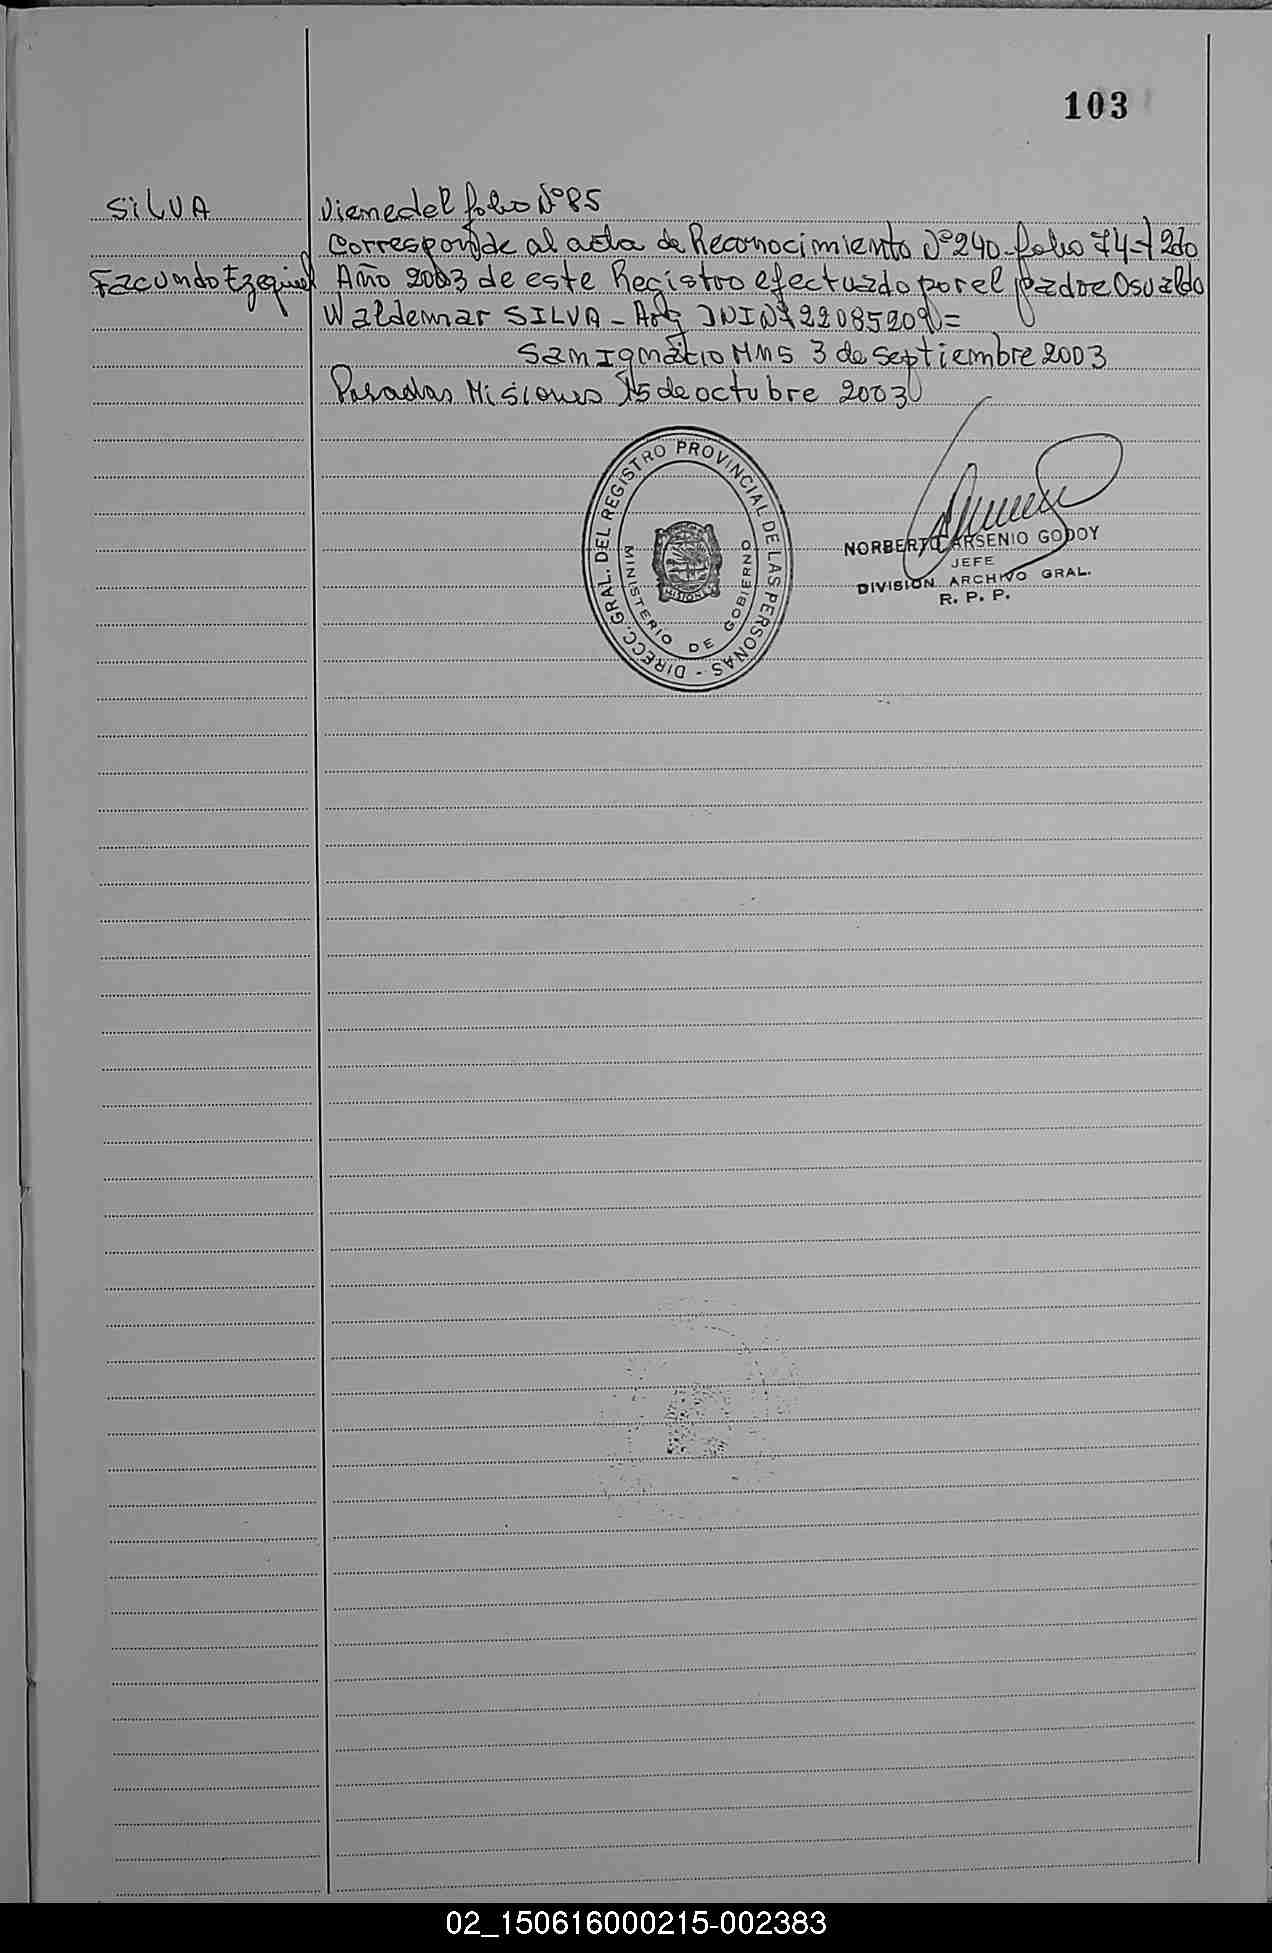 103
SILVA
Viene del folio Nº 85
Corresponde al acta de Reconocimiento Nº 240 - folio 74 - T 2do
Facundo Ezequiel
Año 2003 de este Registro efectuado por el padre Osvaldo
Waldemar SILVA - Arg DNI Nº 22085209 =
San Ignacio Mns 3 de septiembre 2003
Posadas Misiones 15 de octubre 2003
DIRECC. GRAL. DEL REGISTRO PROVINCIAL DE LAS PERSONAS -
MINISTERIO DE GOBIERNO
MISIONES
NORBERTO ARSENIO GODOY
JEFE
DIVISION ARCHIVO GRAL.
R. P. P.
02_150616000215-002383